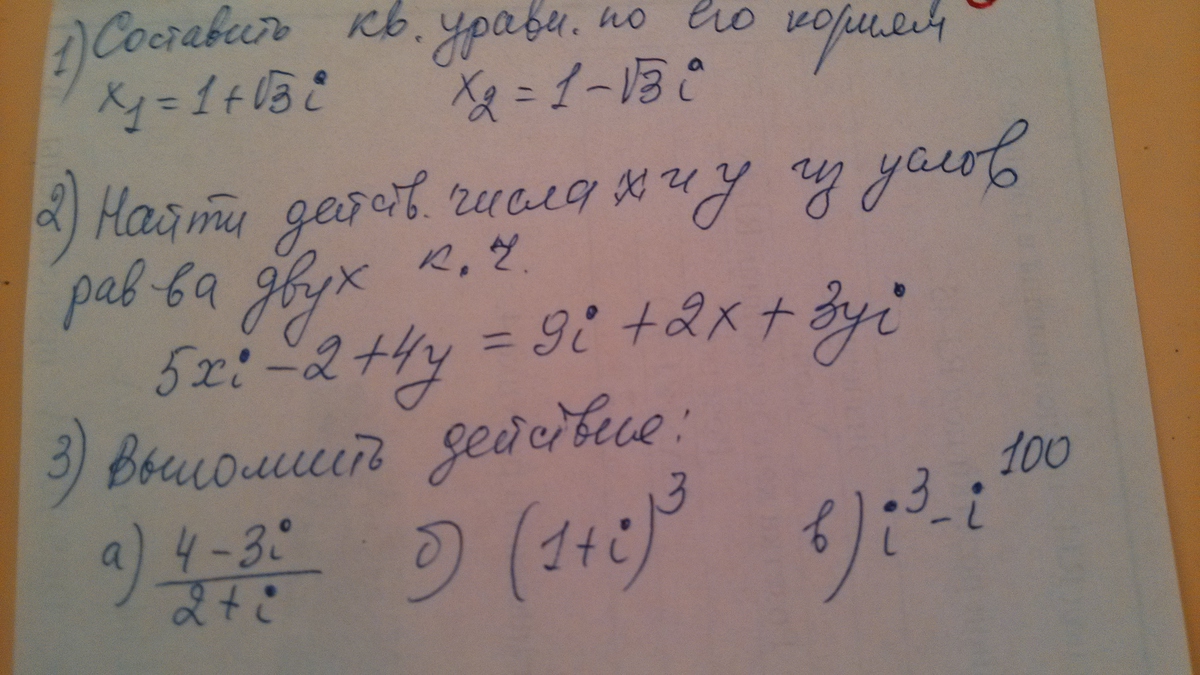 1) Составить кв. уравн. по его корням
x₁ = 1 + √3 i x₂ = 1 - √3 i
2) Найти действ. числа x и y из услов
рав-ва двух к.ч.
5xi - 2 + 4y = 9i + 2x + 3yi
3) Выполнить действие:
а) (4 - 3i)/(2 + i) б) (1 + i)³ в) i³ - i¹⁰⁰